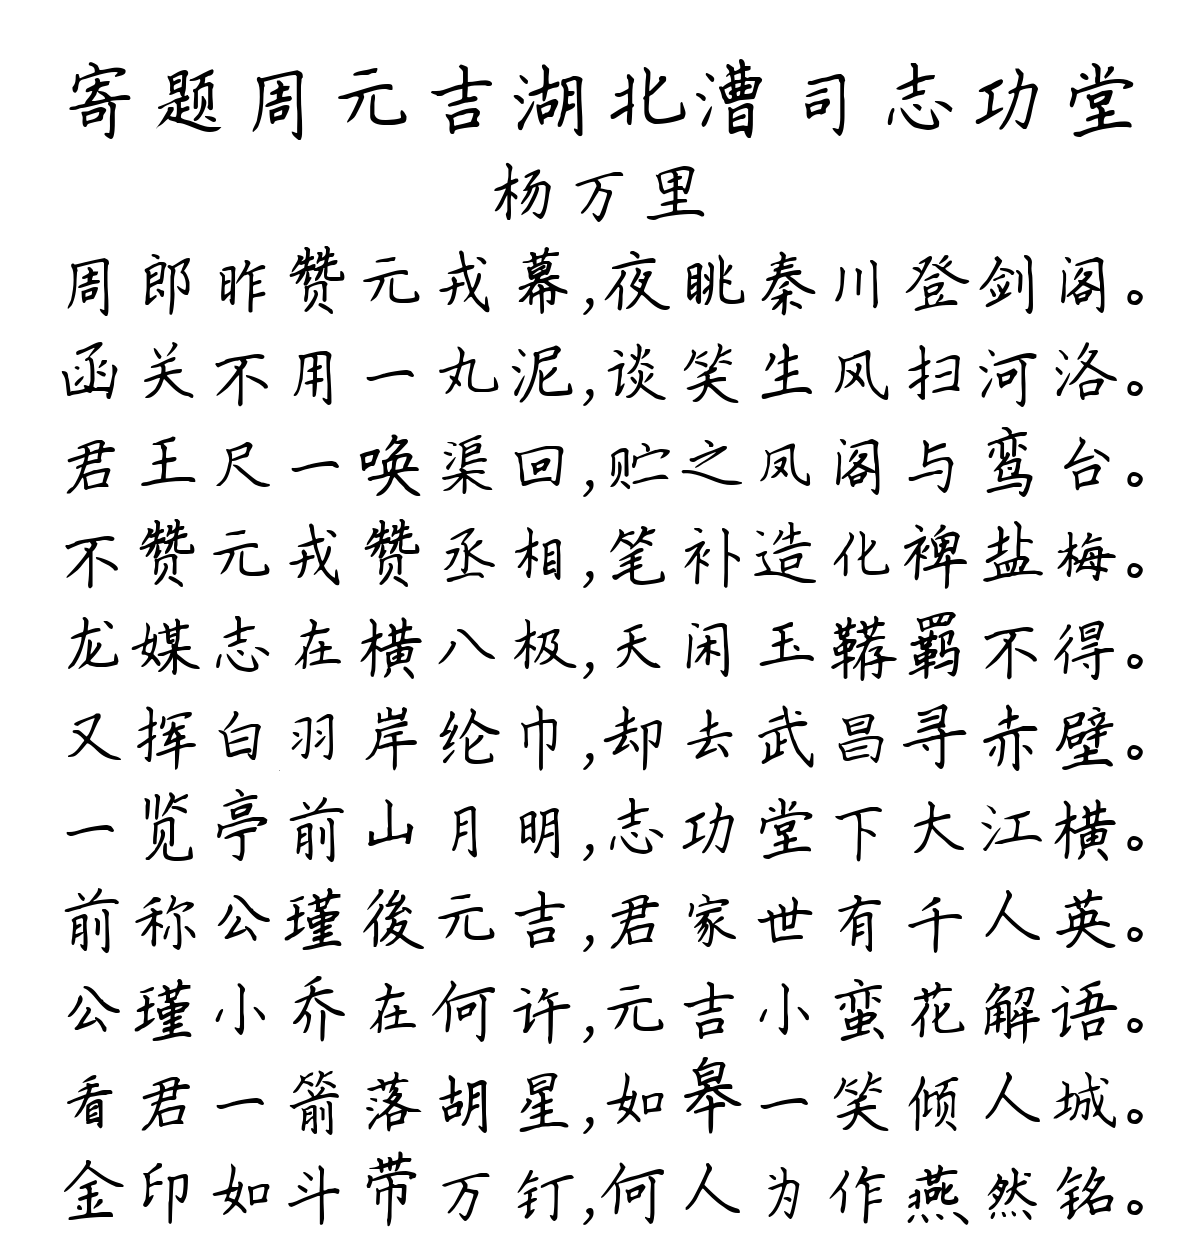 寄题周元吉湖北漕司志功堂
杨万里
周郎昨赞元戎幕,夜眺秦川登剑阁。
函关不用一丸泥,谈笑生风扫河洛。
君王尺一唤渠回,贮之凤阁与鸾台。
不赞元戎赞丞相,笔补造化裨盐梅。
龙媒志在横八极,天闲玉鞯羁不得。
又挥白羽岸纶巾,却去武昌寻赤壁。
一览亭前山月明,志功堂下大江横。
前称公瑾後元吉,君家世有千人英。
公瑾小乔在何许,元吉小蛮花解语。
看君一箭落胡星,如皋一笑倾人城。
金印如斗带万钉,何人为作燕然铭。